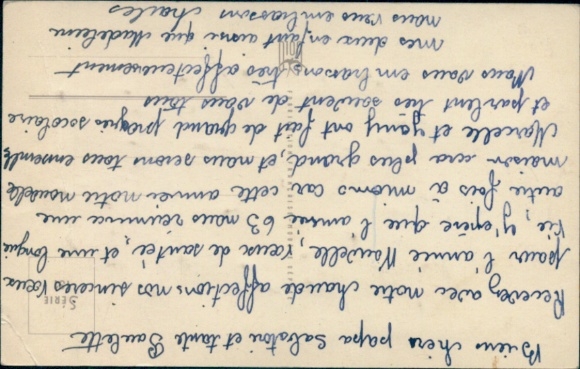 Biens chèrs papa Salvatori et tante Paulette
Recevez avec notre chaude affections nos sincères Vœux
pour l'année Nouvelle, vœux de santée, et une longue
vie, j'espère que l'année 63 nous réunnice une
autre fois à mioms car cette année notre nouvelle
maison sera plus grand, et nous serons tous ensemble
Marcelle et Gany ont fait de grand progrès socolaire
et parlent très souvent de vous tous
Nous vous embrassons très affecteusement
mes deux enfant ainsi que Madeleine
nous vous embrassons Charles
SÉRIE